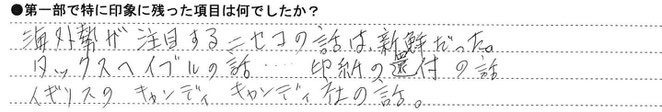 ●第一部で特に印象に残った項目は何でしたか？
海外勢が注目するニセコの話は、新鮮だった。
タックスヘイブルの話…… 印紙の還付の話
イギリスのキャンディキャンディ社の話。